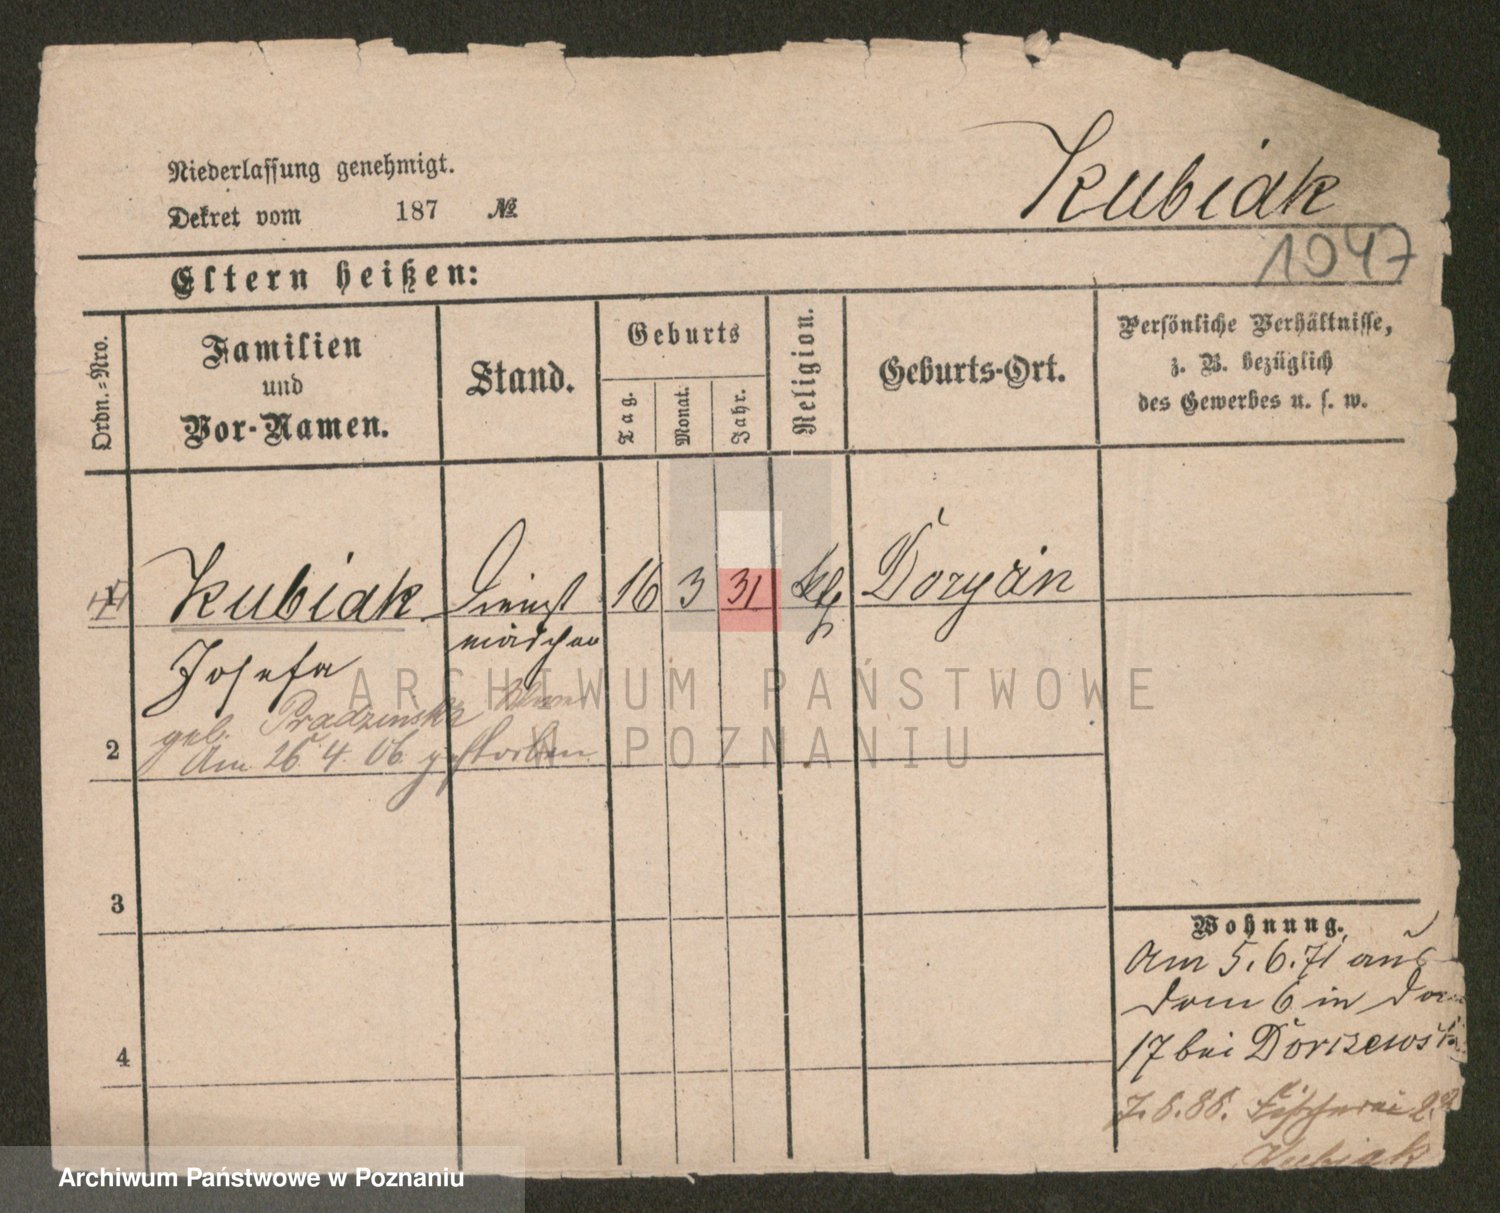 Niederlassung genehmigt.
Dekret vom 187 №
Kubiak
1047
Eltern heißen:
Ordn.=Nro.
Familien
und
Vor-Namen.
Stand.
Geburts
Tag.
Monat.
Jahr.
Religion.
Geburts-Ort.
Persönliche Verhältnisse,
z. B. bezüglich
des Gewerbes u. s. w.
1 Kubiak Dienst 16 3 31 Kth
mädchen
Josefa
geb. Pradzinska
2 Am 26. 4. 06. gestorben
3
4
Wohnung.
Am 5. 6. 71 aus
Dom 6 in Dom
17 bei
7. 6. 86. Fischerei
Kubiak
ARCHIWUM PAŃSTWOWE
W POZNANIU
Archiwum Państwowe w Poznaniu